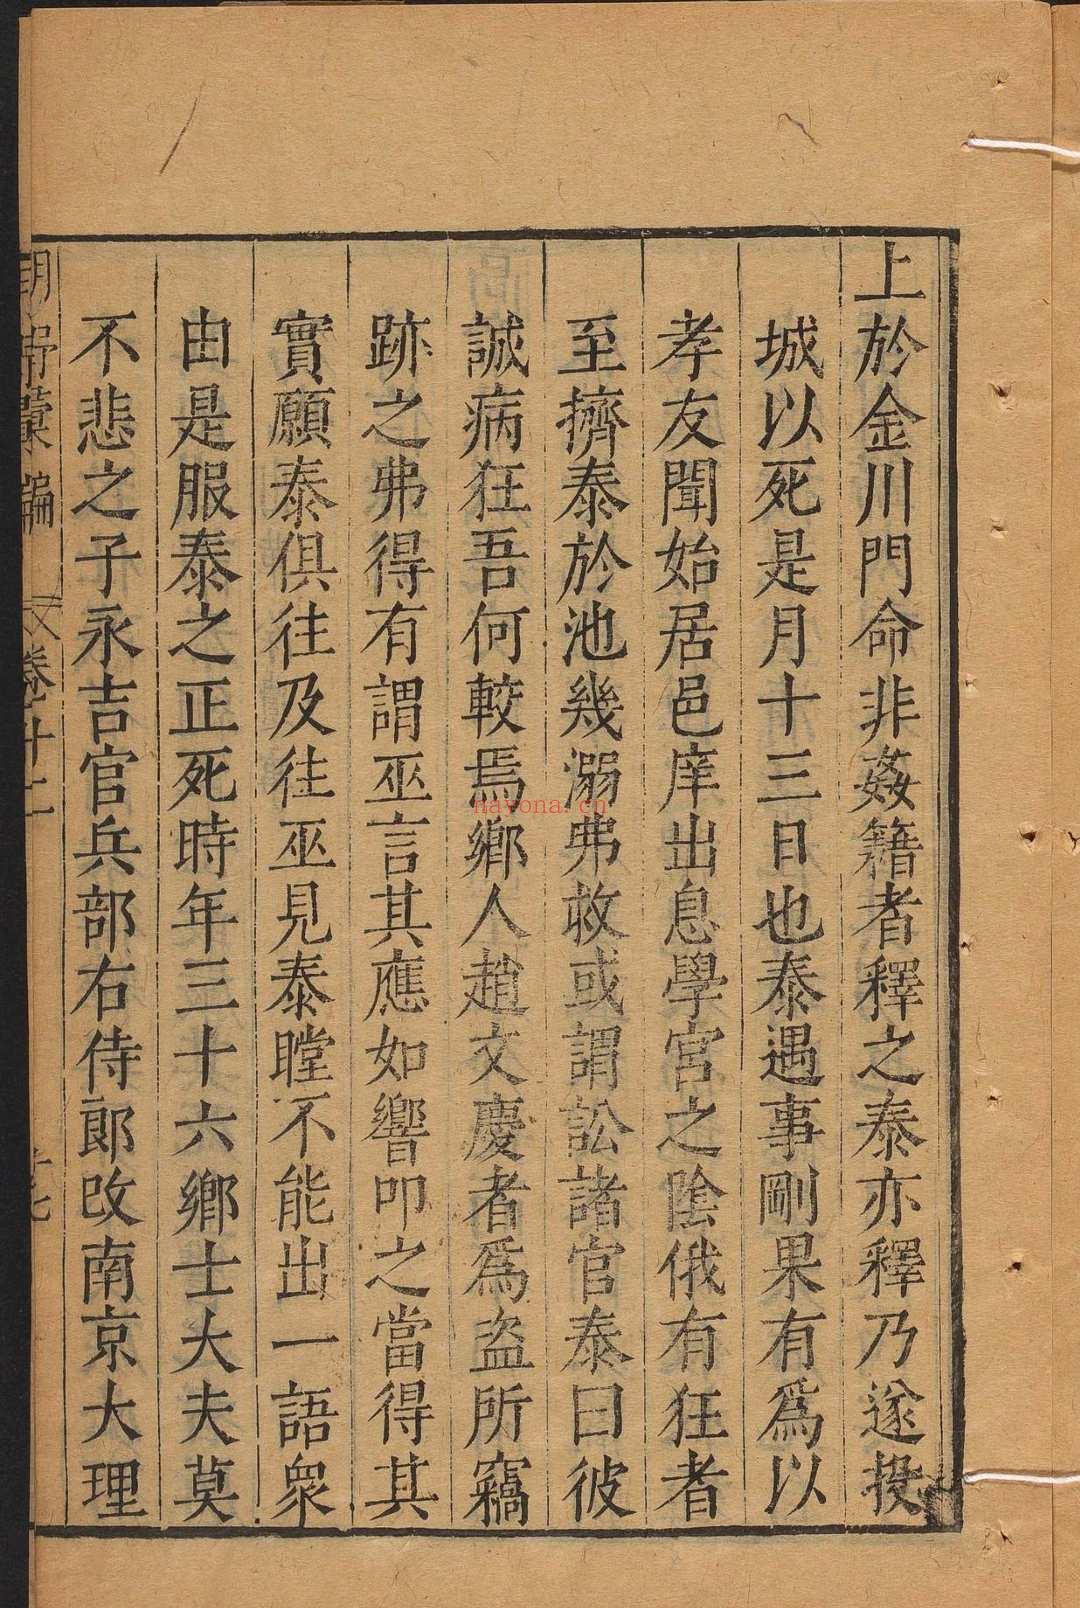 上於金川門命非姦籍者釋之泰亦釋乃遂投
城以死是月十三日也泰遇事剛果有為以
孝友聞始居邑庠出息學宮之陰俄有狂者
至擠泰於池幾溺弗救或謂訟諸官泰曰彼
誠病狂吾何較焉鄉人趙文慶者為盗所竊
跡之弗得有謂巫言其應如響叩之當得其
實願泰俱往及往巫見泰瞠不能出一語衆
由是服泰之正死時年三十六鄉士大夫莫
不悲之子永吉官兵部右侍郎改南京大理
文卷十二
nayona.cn